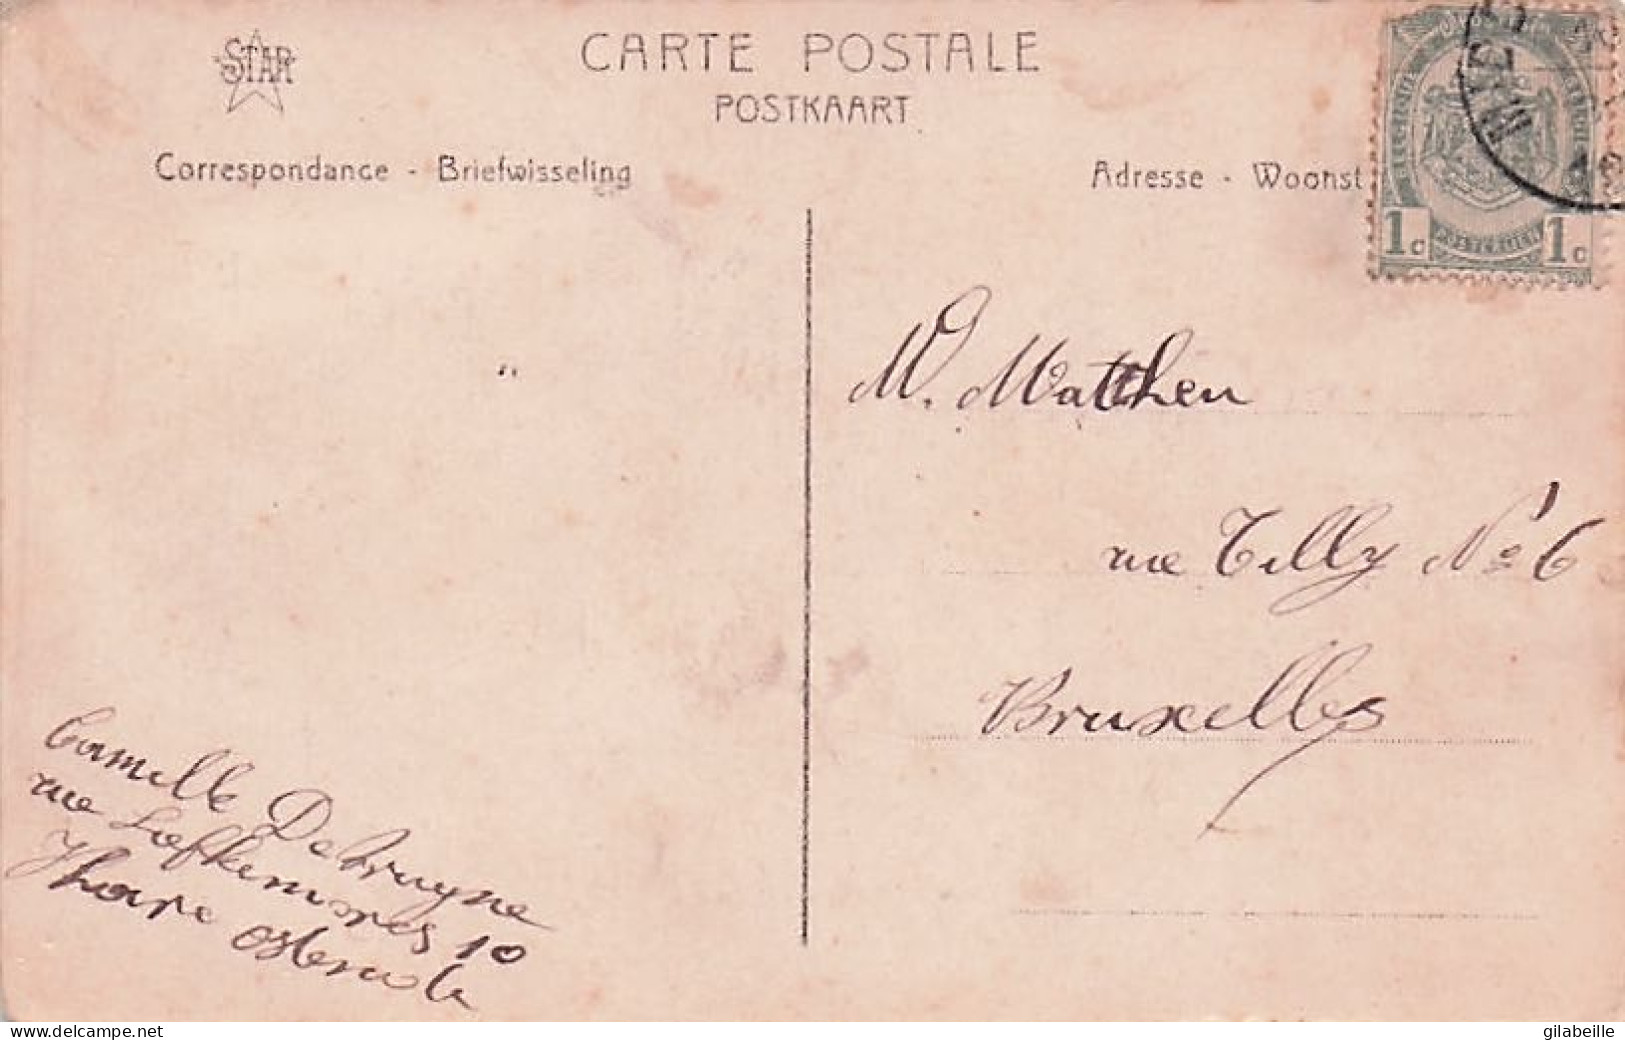 STAR
CARTE POSTALE
POSTKAART
Correspondance - Briefwisseling
Adresse - Woonst
1c 1c
M. Matthen
rue Tilly No 6
Bruxelles
Camille Debruyne
rue 10
Ostende
www.delcampe.net
gilabeille